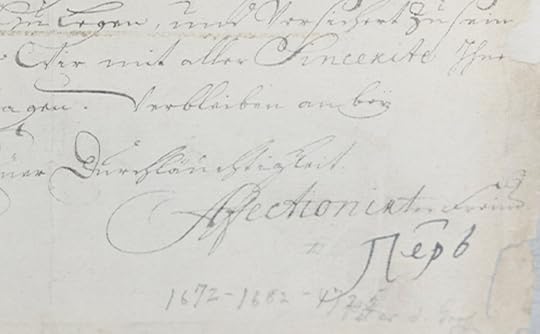 Zu Legen, und Versichert Zu sein
Wir mit aller Sincerité Ihne
agen. Verbleiben anbey
uer Durchläuchtigkeit.
Affectionirter Freund
Петръ
1672-1682-1725